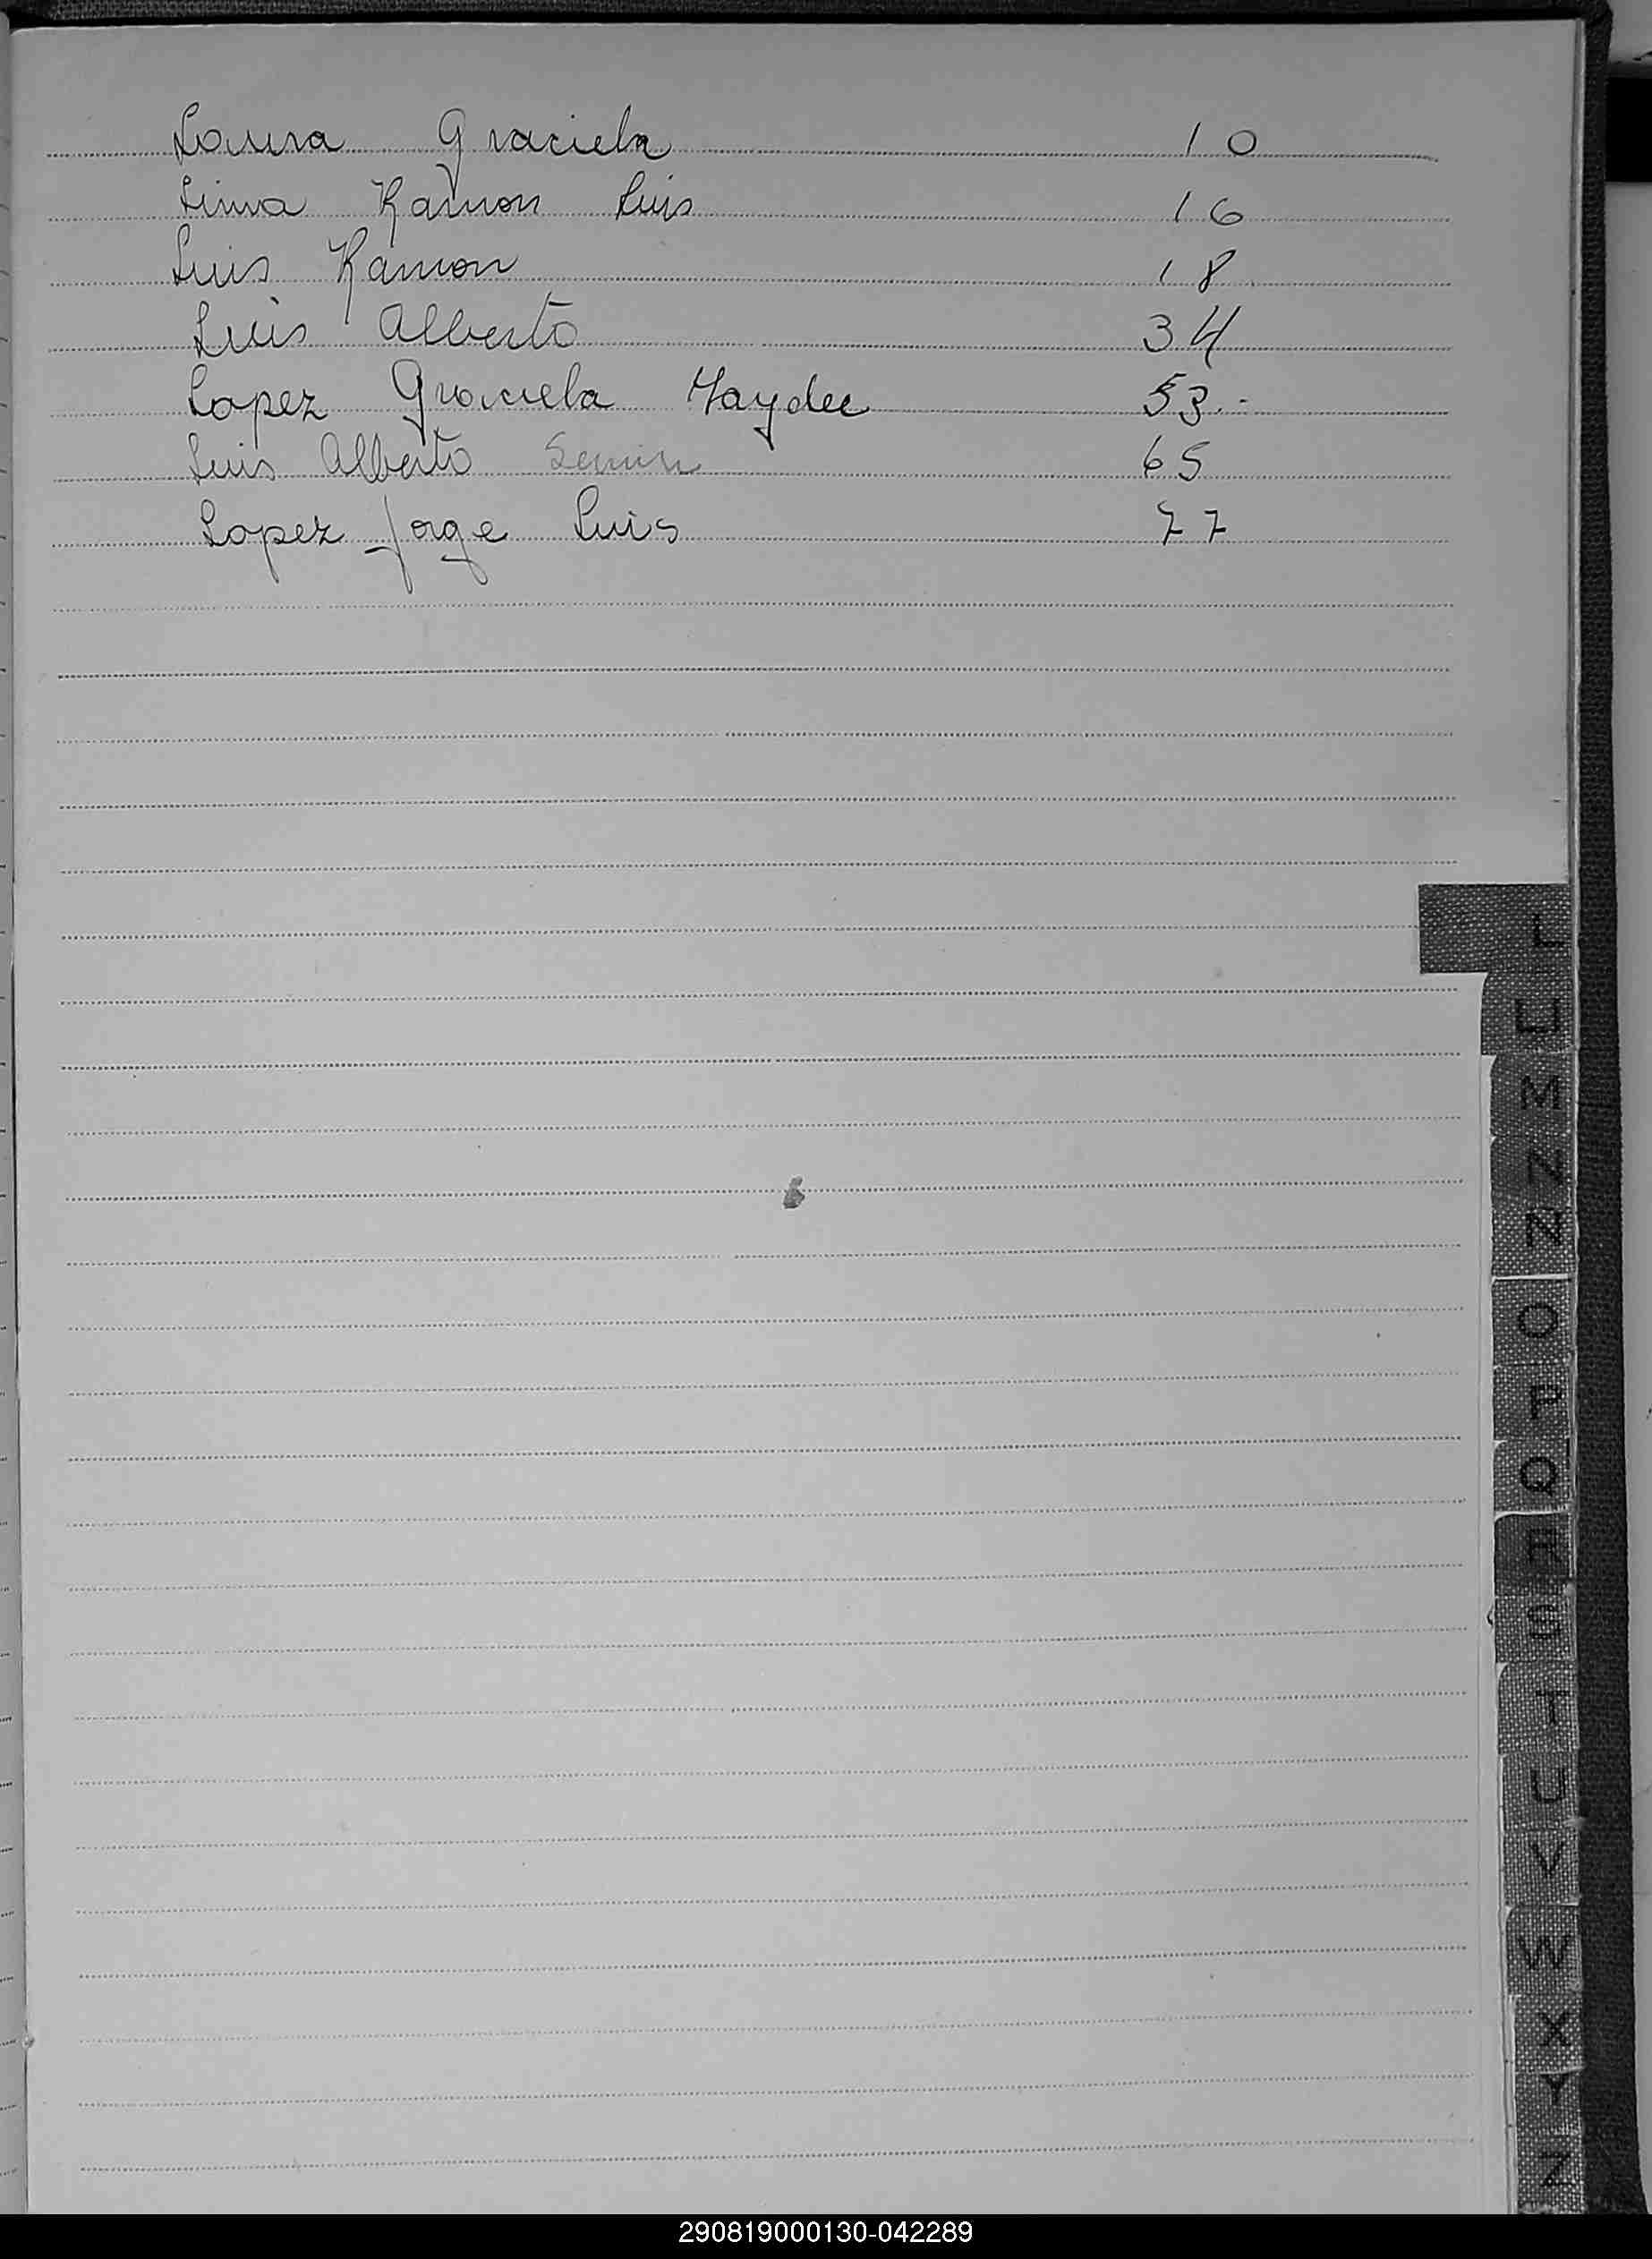 Laura Graciela 10
Lima Ramon Luis 16
Luis Ramon 18
Luis Alberto 34
Lopez Graciela Haydee 53.-
Luis Alberto 65
Lopez Jorge Luis 77
L
LL
M
N
Ñ
O
P
Q
R
S
T
U
V
W
X
Y
Z
290819000130-042289